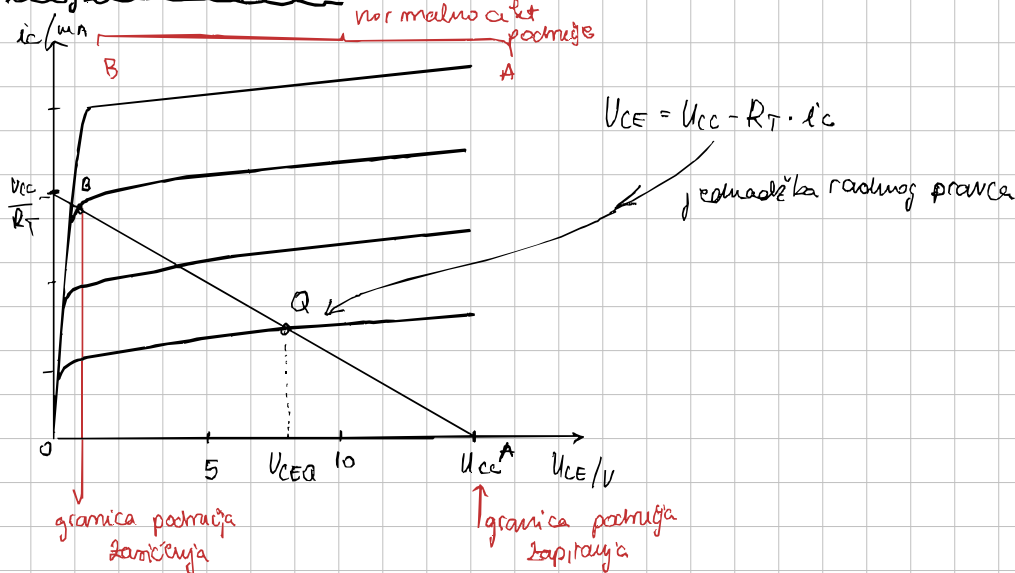 normalno akt
područje
ic/mA
B
A
UCE = UCC - RT · ic
jednadžba radnog pravca
UCC
RT
B
Q
0
5
UCEQ
10
UCC
A
UCE/V
granica područja
zasićenja
granica područja
zapiranja